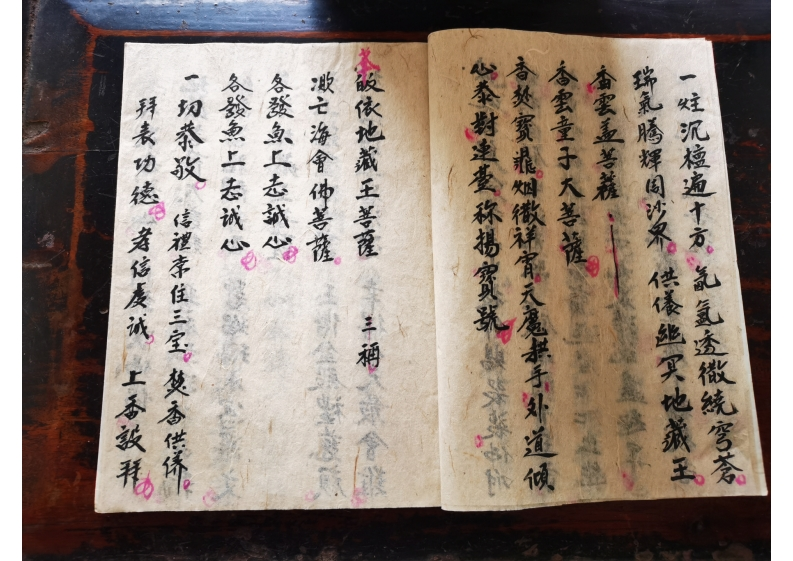 一炷沉檀遍十方 氤氳透徹繞穹蒼
瑞氣騰輝周沙界 供儀幽冥地藏王
香雲蓋菩薩
香雲童子大菩薩
香焚寶鼎烟徹祥霄天魔拱手外道傾
心恭對連臺称揚寶號
恭皈依地藏王菩薩 三稱
海會佛菩薩
各發魚上志誠心
各發魚上志誠心
一切恭敬 信禮常住三宝 焚香供俻
拜表功德 孝信虔誠 上香設拜